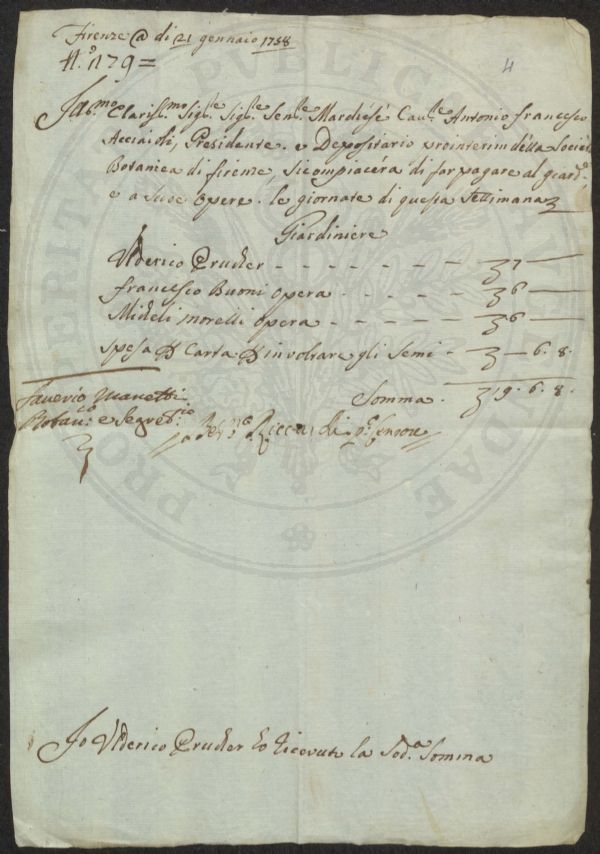 Firenze @ di 21 gennaio 1758
N.º 179 =
4
Clariss.mo Sig.re Sig.re Sen.re Marchése Cau.re Antonio francesco
Acciaioli, Presidente. e Depositario prointerim della Società
Botanica di firenze, si compiacéra di far pagare al giard.e
e a Sue Opere. le giornate di questa Settimana
Giardiniere
Ulderico Prucker - - - - - - - 7 —
francesco Buoni Opera - - - - 6 —
Micheli morelli Opera - - - - 6 —
spesa P Carta P involtare gli Semi - — 6. 8.
Saverio Manetti
Somma. 19. 6. 8.
Botan.co e Segret.rio
Riccardi Censore
Io Ulderico Prucker ho ricevuto la Sod.a Somma
PUBLICAE
PROSPERITATI